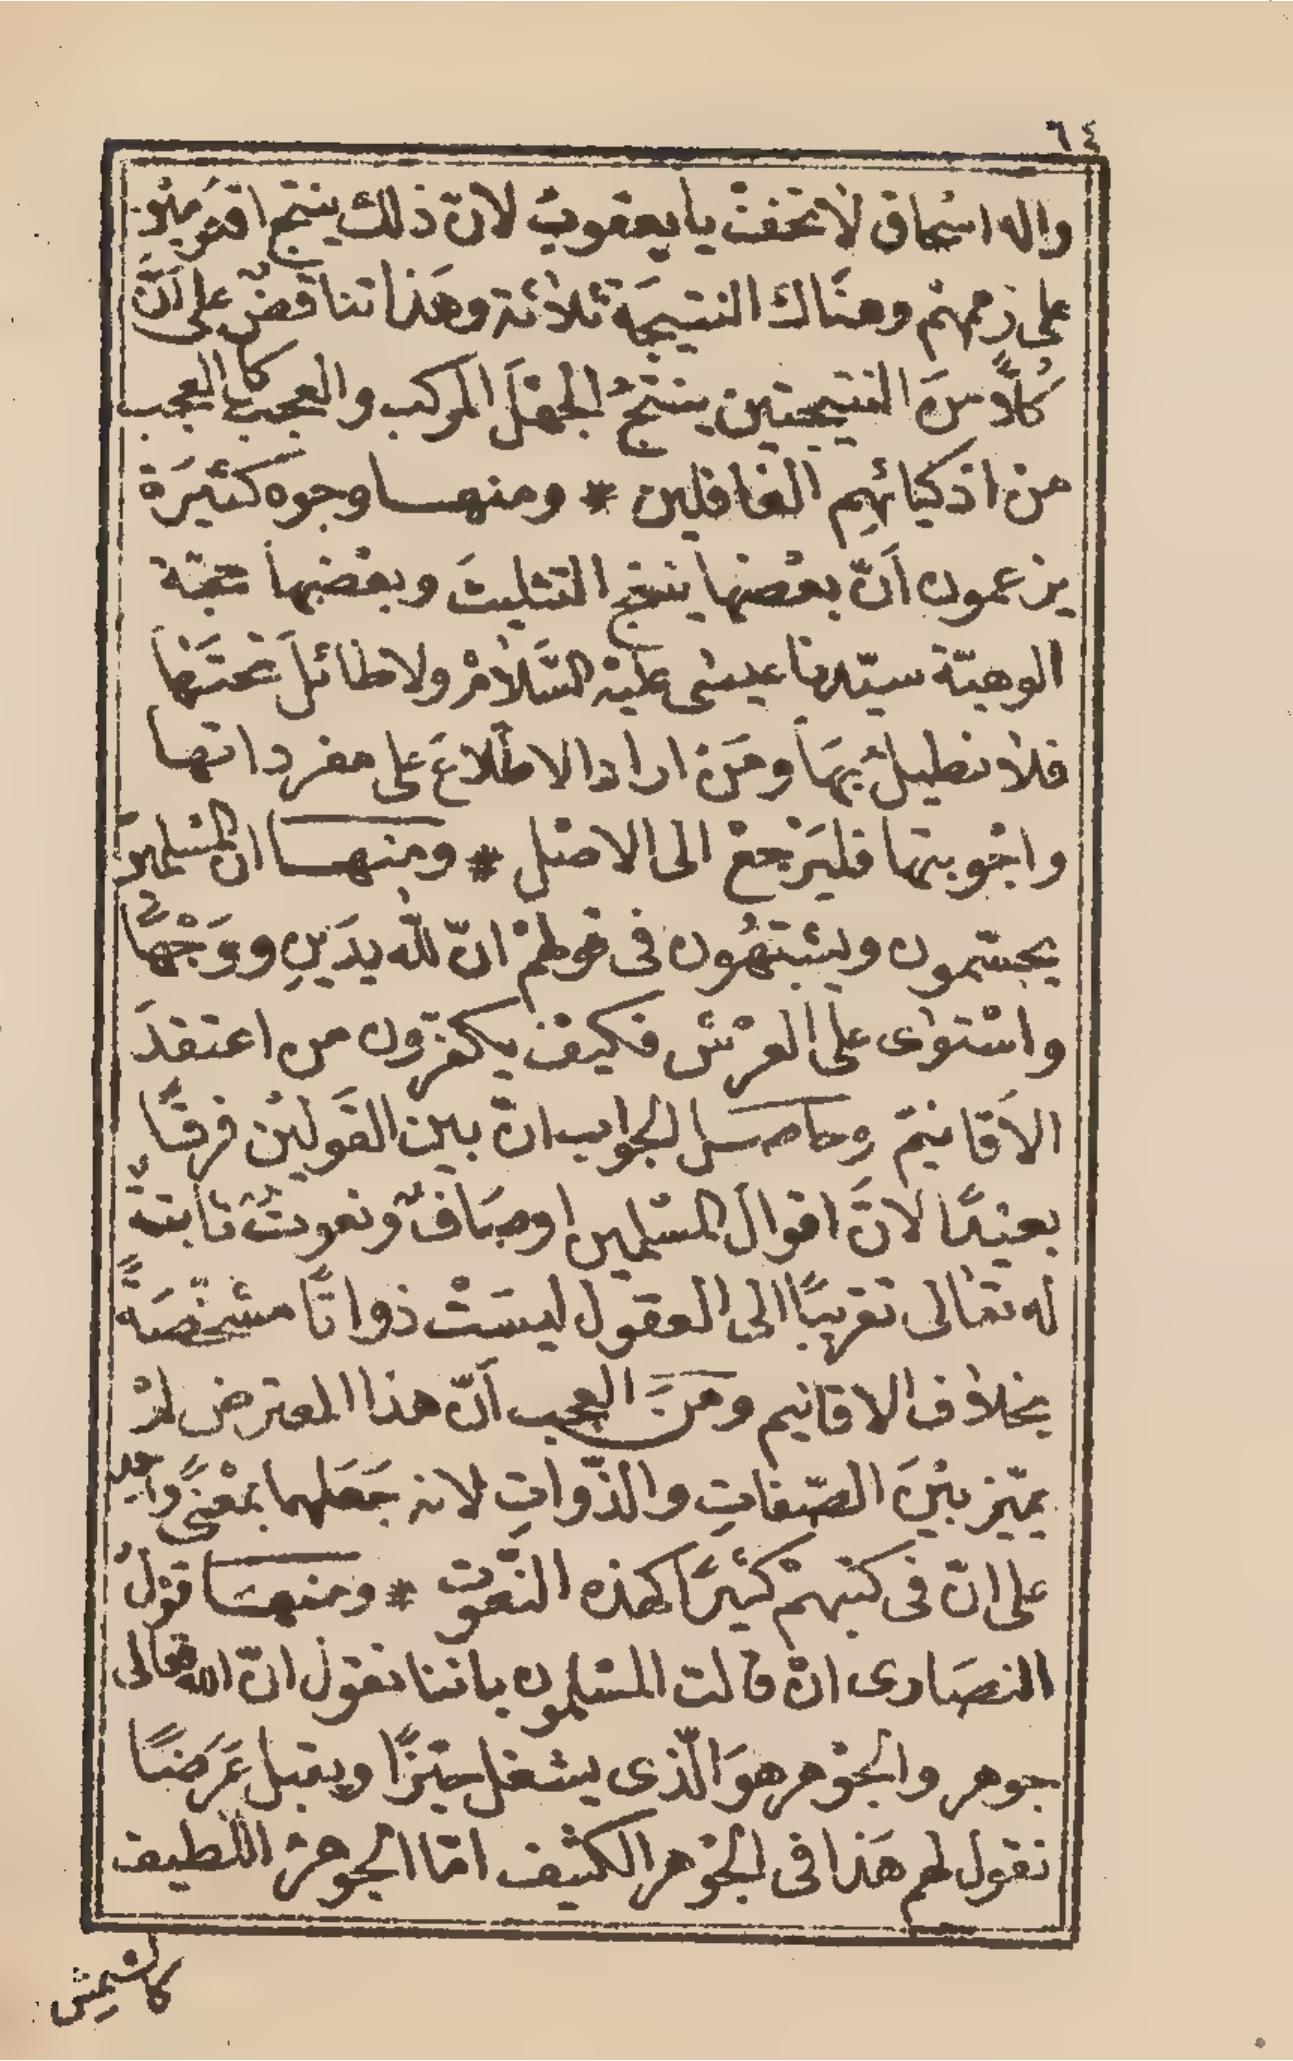 ٦٤
واله اسْحاق لاتخفْ يا يعقوبُ لانّ ذلك ينتج اقنُومَيْن
على زعمهمْ وهنَاك النتيجَة ثلاثة وهَذا تناقضٌ على أنَّ
كُلاًّ منَ النتيجتين ينتجُ الجهْلَ المركب والعجبُ كل العجب
منْ اذكيائهِم الغافلين * ومنهـا وجوه كثيرَة
يزعمون أنّ بعْضها ينتج التثليثَ وبعْضها حجّة
الوهيّة سيّدنا عيسٰى عليْه السَّلامْ ولا طائلَ تحتَها
فلا نطيلُ بهَا ومَنْ اراد الاطّلاعَ على مفرداتها
واجْوبتها فليَرْجعْ الى الاصْل * ومنهـا انّ المسْلمينَ
يجسّمون ويشبّهُون فى قولهمْ انّ للّٰه يدَينِ ووَجْهًا
واسْتوٰى على العرْش فكيْف يكفّرون من اعتقدَ
الأقانيمَ وحاصـل الجواب انّ بين القَوليْن فرقًا
بعيْدًا لانَّ اقوالَ المسْلمين اوصَافٌ ونعوتٌ ثابتةٌ
له تعالى تقريبًا الى العقول ليسَتْ ذواتًا مشخّصَةً
بخلاف الاقانيم ومنَ العجب أنّ هذا المعترض لمْ
يميّز بيْنَ الصّفاتِ والذّواتِ لانه جَعَلهما بمعْنىً واحد
على انّ فى كتبهمْ كثيرًا كهذه النّعوت * ومنهـا قوْلُ
النصَارى انْ قالت المسْلمون باننا نقول انّ اللّه تعالى
جوهر والجوْهر هوَ الّذى يشغل حيّزًا ويقبل عَرَضًا
نقول لهم هَذا فى الجوْهر الكثيف امّا الجوهرْ اللّطيف
كالشمس